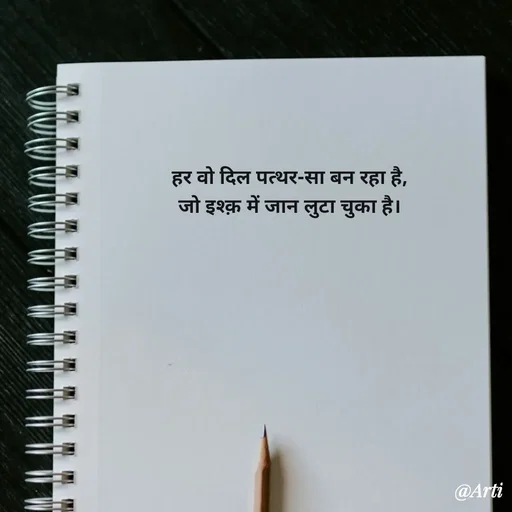 हर वो दिल पत्थर-सा बन रहा है,
जो इश्क़ में जान लुटा चुका है।
@Arti